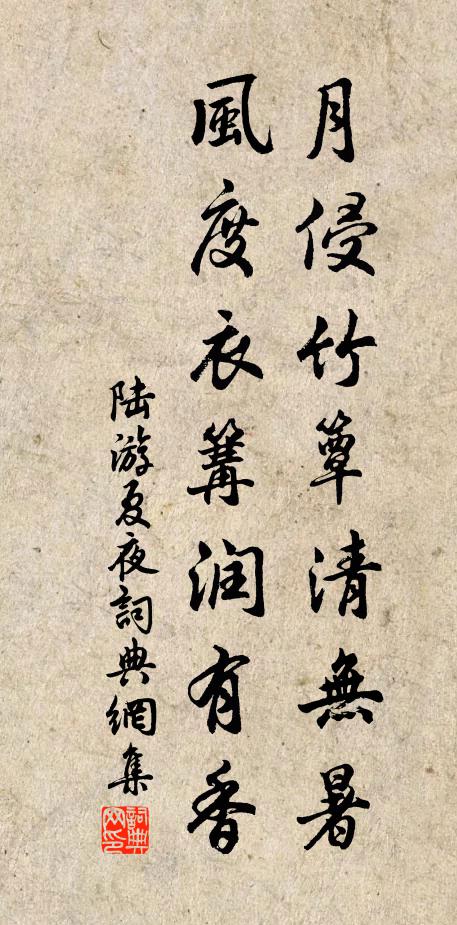 月侵竹簟清無暑
風度衣篝润有香
陆游夏夜詞典網集
詞典網印